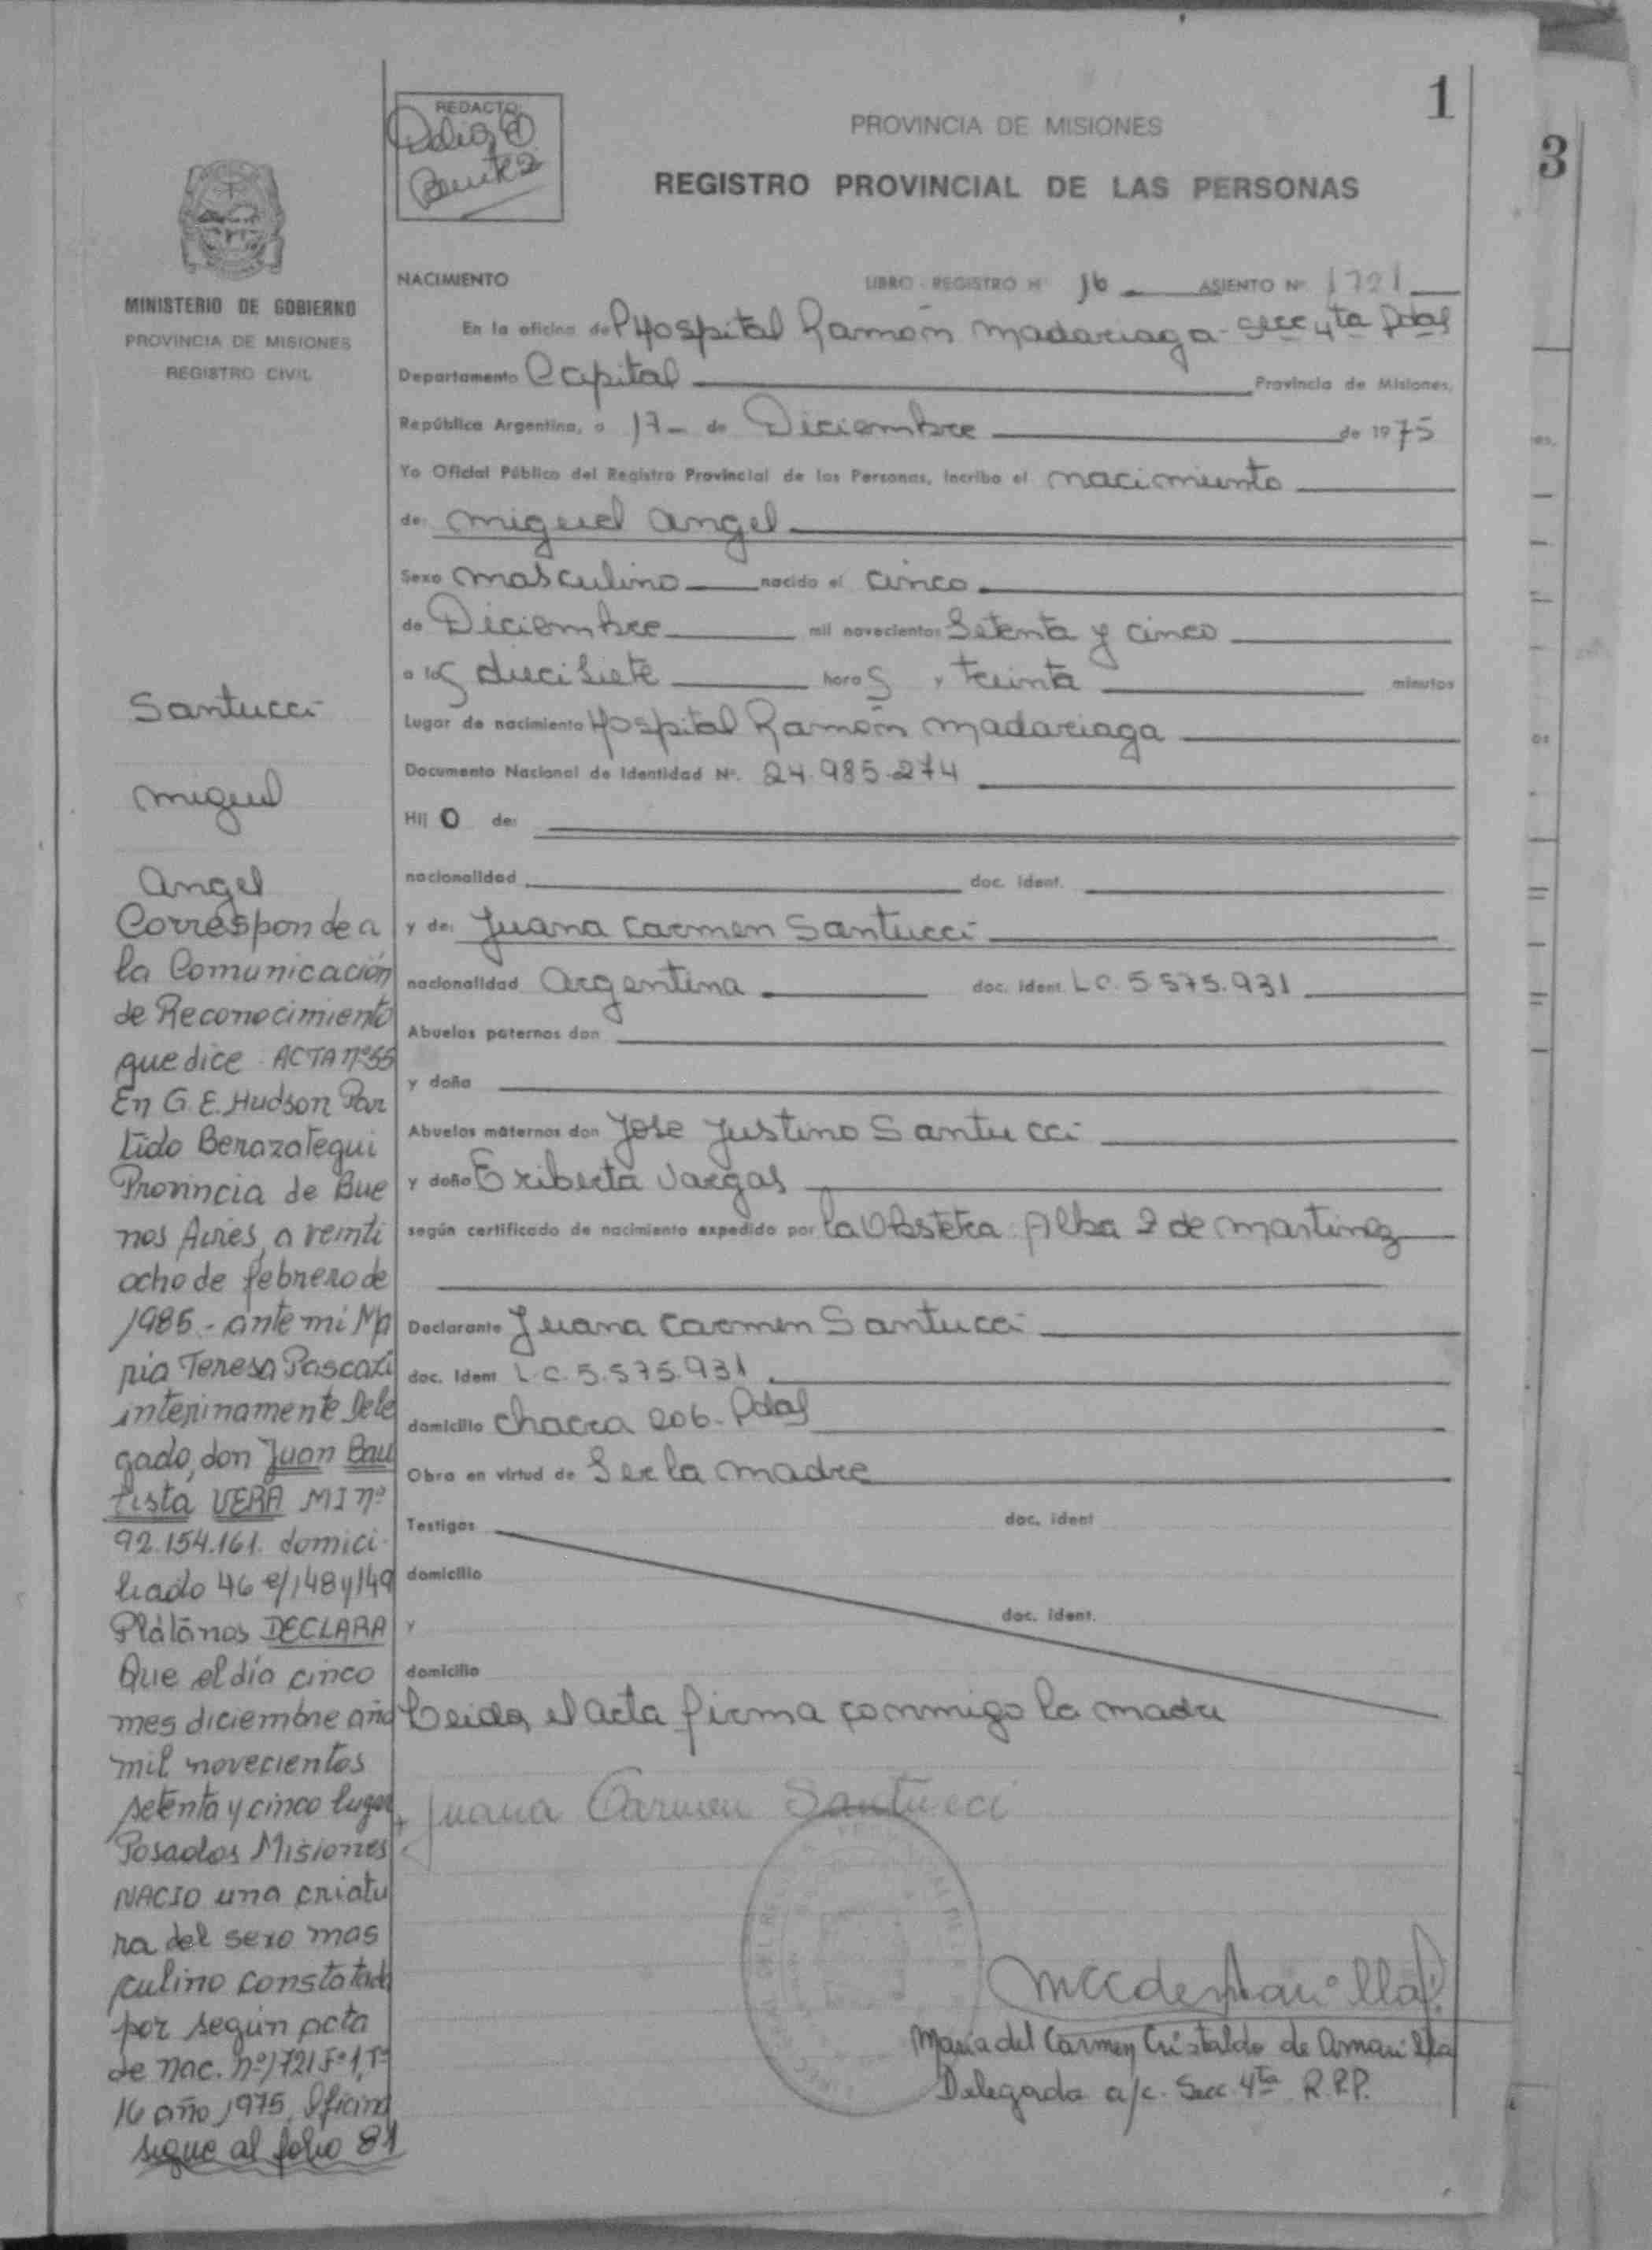 1
3
REDACTO
PROVINCIA DE MISIONES
REGISTRO PROVINCIAL DE LAS PERSONAS
MINISTERIO DE GOBIERNO
PROVINCIA DE MISIONES
REGISTRO CIVIL
NACIMIENTO LIBRO - REGISTRO Nº 16 ASIENTO Nº 1721
En la oficina del Hospital Ramón Madariaga - Secc 4ta Pdas
Departamento Capital Provincia de Misiones,
República Argentina, a 17 - de Diciembre de 1975
Yo Oficial Público del Registro Provincial de las Personas, incribo el nacimiento
de: Miguel Angel
Sexo masculino nacido el cinco
de Diciembre mil novecientos Setenta y cinco
a las diecisiete horas y treinta minutos
Lugar de nacimiento Hospital Ramón Madariaga
Documento Nacional de Identidad Nº. 24.985.274
Hij O de:
nacionalidad doc. ident.
y de: Juana Carmen Santucci
nacionalidad Argentina doc. ident. L.C. 5.575.931
Abuelos paternos don
y doña
Abuelos maternos don Jose Justino Santucci
y doña Eriberta Vargas
según certificado de nacimiento expedido por la Obstetra: Alba de Martinez
Declarante Juana Carmen Santucci
doc. Ident L.C. 5.575.931
domicilio chacra 206 - Pdas
Obra en virtud de Ser la madre
Testigos doc. ident
domicilio
y doc. ident.
domicilio
Leida el acta firma conmigo la madre
Juana Carmen Santucci
Maria del Carmen Cristaldo de Amarilla
Delegada a/c. Secc. 4ta R.P.P.
Santucci
Miguel
Angel
Corresponde a
la Comunicación
de Reconocimiento
que dice ACTA nº55
En G. E. Hudson Par
tido Berazategui
Provincia de Bue
nos Aires, a veinti
ocho de febrero de
1985 - ante mi Ma
ria Teresa Pascati
interinamente Dele
gado, don Juan Bau
tista VERA MI nº
92.154.161. domici
liado 46 e/148 y 149
Plátanos DECLARA
Que el día cinco
mes diciembre año
mil novecientos
setenta y cinco lugar
Posadas Misiones
NACIO una criatu
ra del sexo mas
culino constatada
por según acta
de nac. nº1721 Fº1, Tº
16 año 1975, Oficina
sigue al folio 81